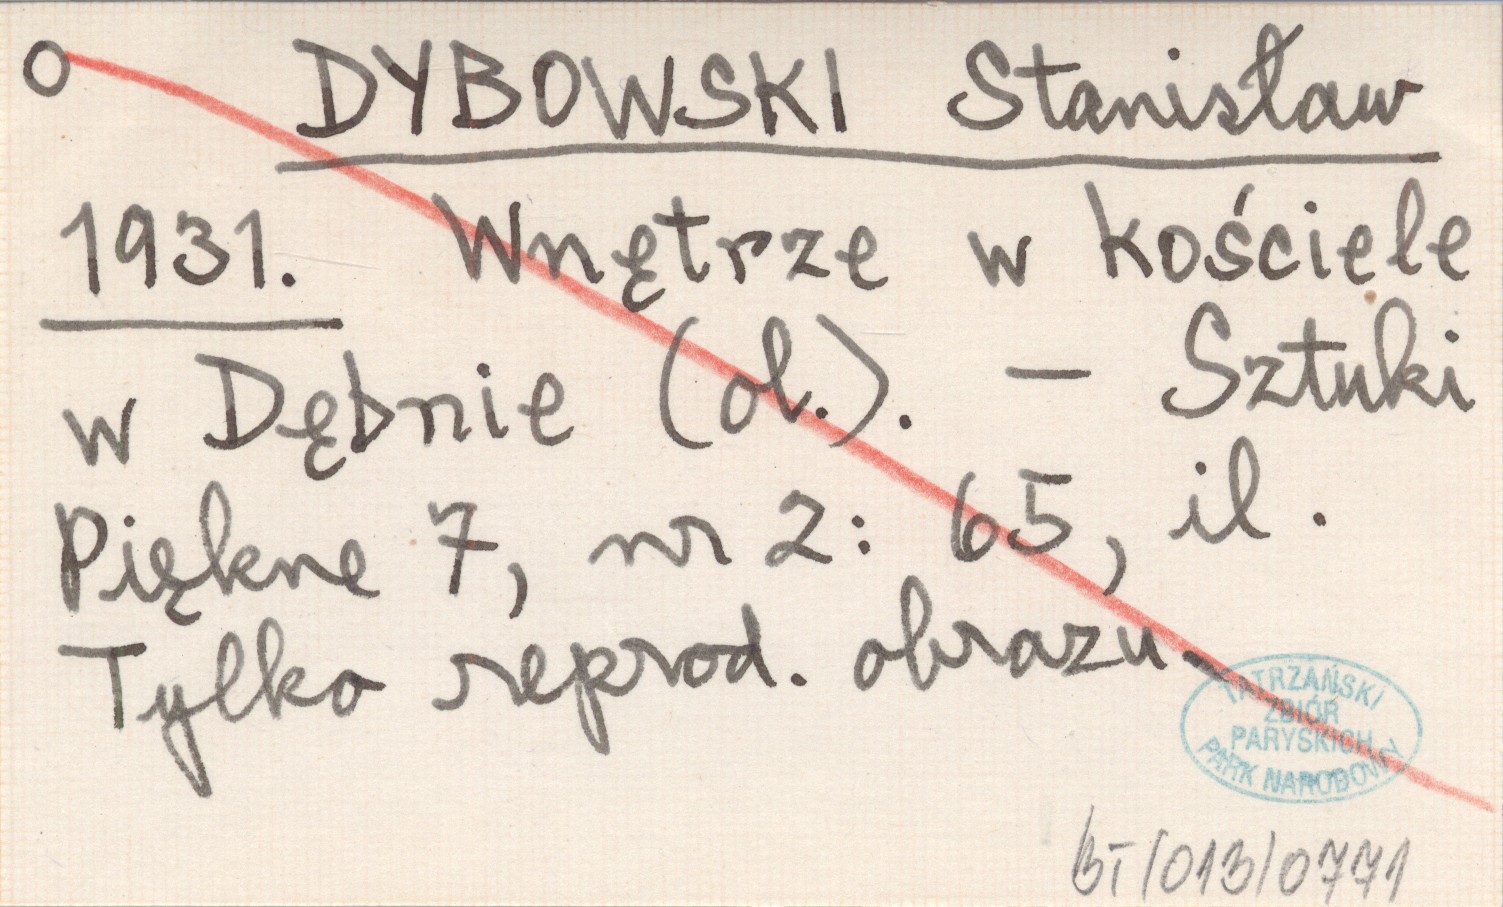 O DYBOWSKI Stanisław
1931. Wnętrze w kościele
w Dębnie (ol.). — Sztuki
Piękne 7, nr 2: 65, il.
Tylko reprod. obrazu.
TATRZAŃSKI
ZBIÓR
PARYSKICH
PARK NARODOWY
BT/013/0771